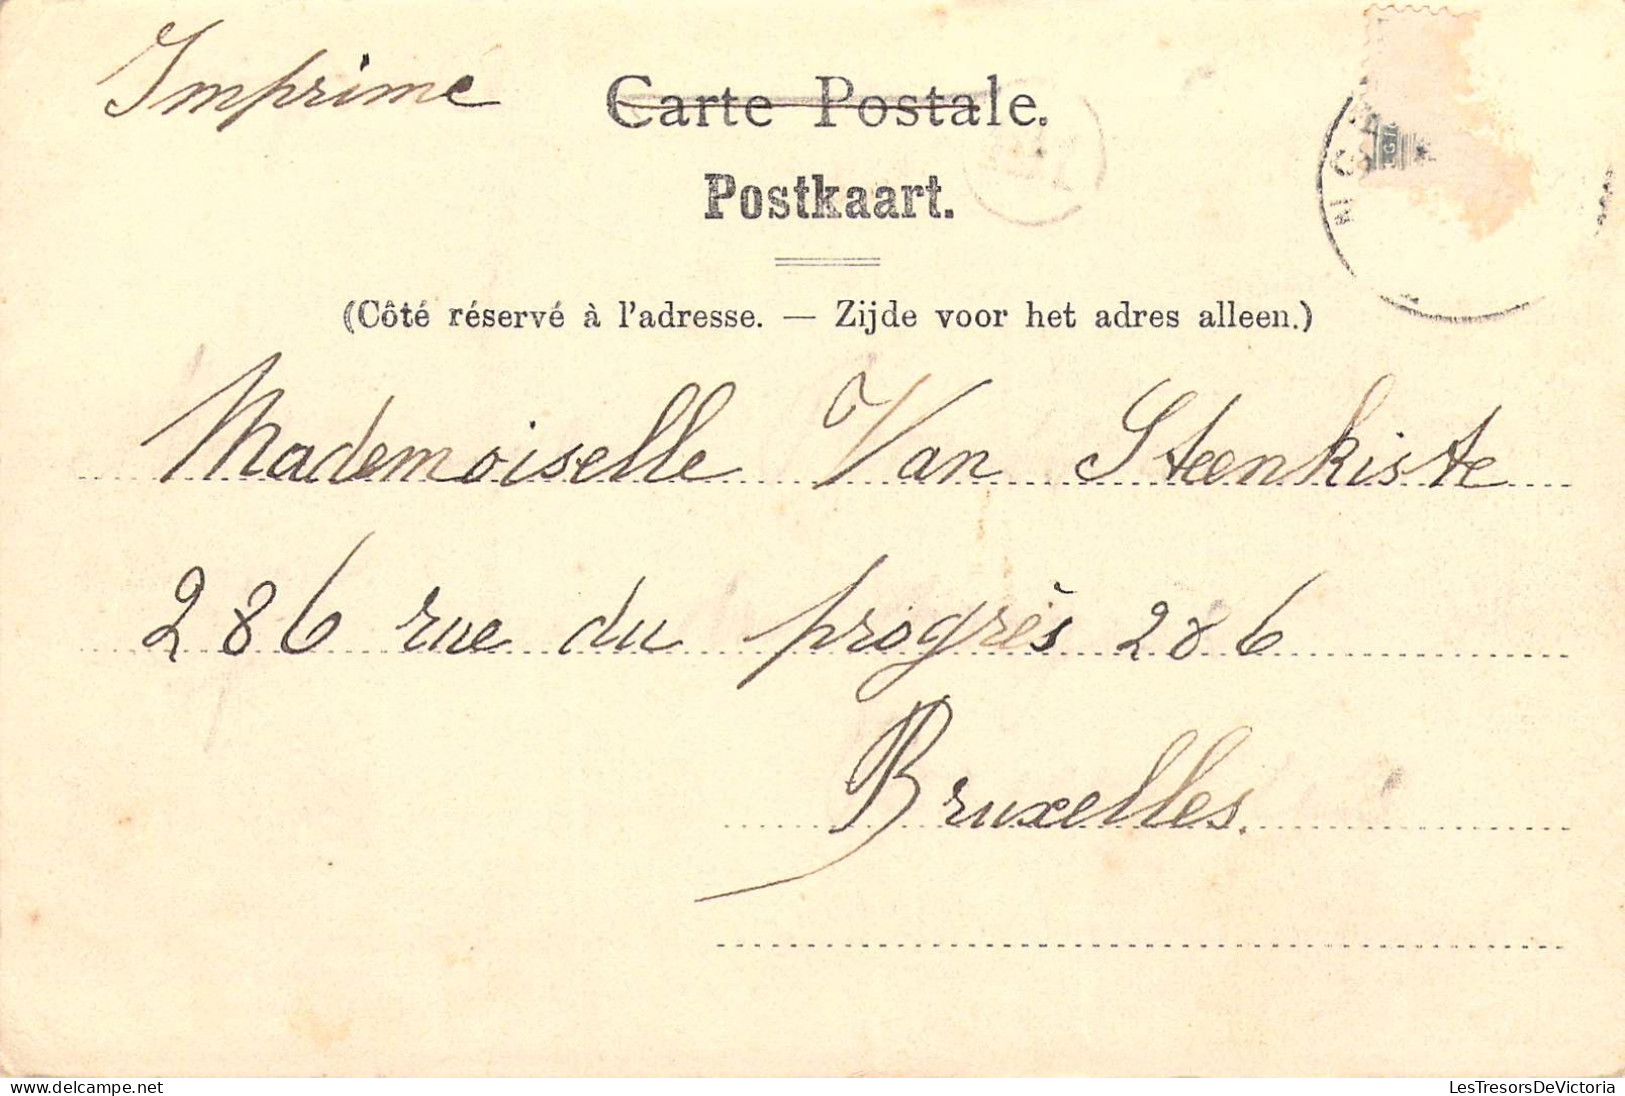 Imprimé
Carte Postale.
Postkaart.
(Côté réservé à l'adresse. — Zijde voor het adres alleen.)
Mademoiselle Van Steenkiste
286 rue du progrès 286
Bruxelles.
LesTresorsDeVictoria